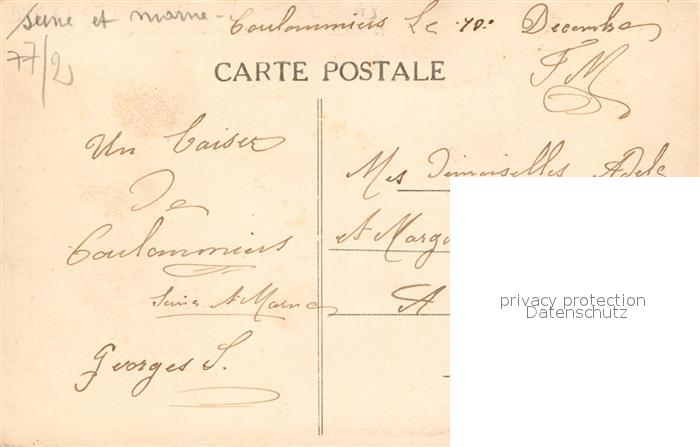 Seine et marne -
77/2
Coulommiers Le 10 Decembre
CARTE POSTALE
F M
Un baiser
De
Coulommiers
Seine et Marne
Georges S.
Mes Demoiselles Adele
et Marg
A
privacy protection
Datenschutz